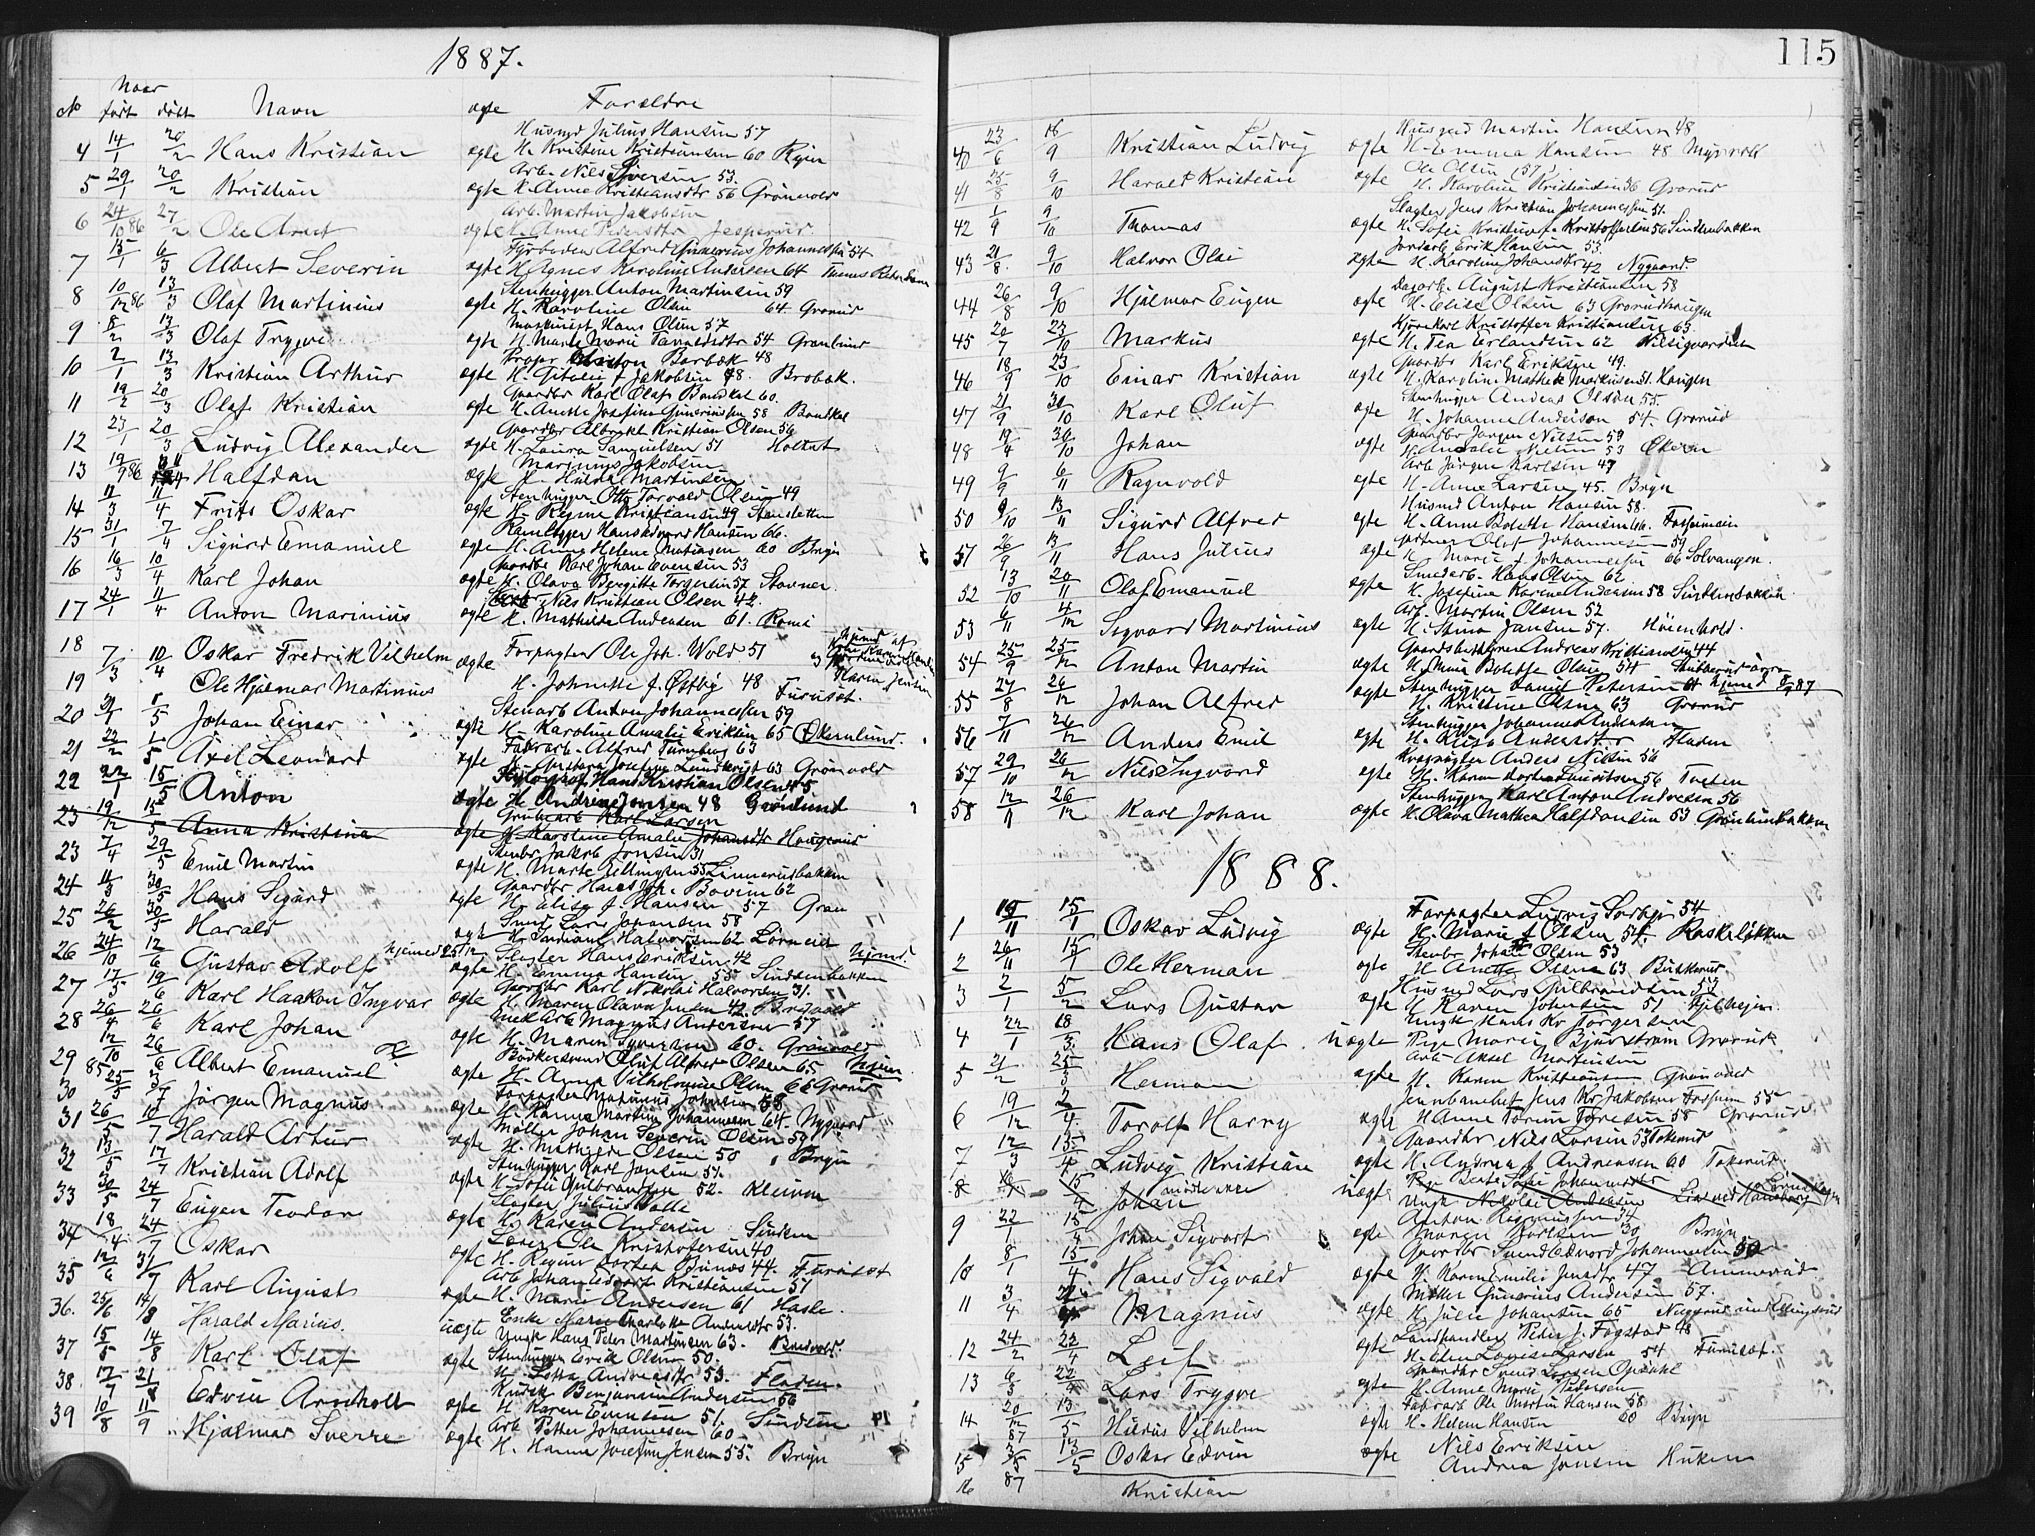 1887.
Naar
No født døbt Navn ægte Forældre
Husmd Julius Hansen 57
4 14/1 20/2 Hans Kristian ægte H. Kristine Kristiansen 60 Ryen
Arb. Nils Iversen 53.
5 29/1 20/2 Kristian ægte H. Anne Kristiansdtr 56 Grønvold
Arb. Martin Jakobsen
6 24/10 86 27/2 Ole Arnt ægte H. Anne Pedersdtr Jesperud
Fyrbøder Alfred Gunerius Johannessen 54
7 15/1 6/3 Albert Severin ægte H. Agnes Karoline Andersen 64
Stenhugger Anton Martinsen 59
8 10/12 86 13/3 Olaf Martinius ægte H. Karoline Olsen 64 Grorud
Maskinist Hans Olsen 57
9 8/2 13/3 Olaf Trygve ægte H. Marte Marie 54 Grønlund
Anton Barbæk 48
10 2/1 13/3 Kristian Arthur ægte H. Gitalie f. Jakobsen 48. Brobæk.
Gaardbr Karl Olaf Bondkal 60.
11 19/2 20/3 Olaf Kristian ægte H. Anette Josefine Gunerinsen 58 Bondkal
Gaardbr Albrekt Kristian Olsen 56
12 23/1 20/3 Ludvig Alexander ægte H. Laura Samuelsen 51
Marinius Jakobsen
13 19/9 86 Halfdan ægte H. Hulda Martinsen
Stenhugger Otto Torvald Olsen 49
14 11/3 11/4 Frits Oskar ægte H. Regine Kristiansen 49 Stensletten
Hans Edvard Hansen 66.
15 31/1 7/4 Sigurd Emanuel ægte H. Anna Helene Matiasen 60 Bryn
Gaardbr Karl Johan Evensen 53
16 16/3 10/4 Karl Johan ægte H. Olava Bergitte Torgersen 57 Stovner
Arb Nils Kristian Olsen 42.
17 24/1 11/4 Anton Marinius ægte H. Mathilde Andersen 61. Romsi
18 7/3 10/4 Oskar Fredrik Vilhelm ægte Forpagter Ole Joh. Wold 51
19 Ole Hjalmar Martinius H. Johnette f. Østby 48 Furuset.
Stenarb Anton Johannessen 59
20 31/1 1/5 Johan Einar ægte H. Karoline Amalie Eriksen 65 Økernlund.
Fabrarb. Alfred Turnberg 63
21 22/2 1/5 Axel Leonard ægte H. Gustava Josefine Lundkvist 63 Grønvold
Hans Kristian Olsen 45
22 22/1 15/5 Anton ægte H. Andrine Jonsen 48 Grønlund
Grubearb Karl Larsen
23 19/12 15/5 Anna Kristina ægte H. Karoline Amalie Johansdtr Haugerud
Stenbr Jakob Jonsen 31
23 7/4 29/5 Emil Martin ægte H. Marte Ellingsen 55 Linnerudbakken
Gaardbr Hans Joh. Bovim 62
24 11/3 30/5 Hans Sigurd ægte H. Elise f. Hansen 57 Gran
Smed Lars Johansen 58
25 26/2 30/5 Harald ægte H. Mariane Halvorsen 62 Lørenveien
26 24/10 12/6 Gustav Adolf hjemed 25/12 Slagter Hans Eriksen 42 hjemd.
ægte H. Emma Hansen 55 Sinsenbakken
27 17/5 19/6 Karl Haakon Ingvar Gaardbr Karl Nikolai Halvorsen 31.
ægte H. Maren Olava Jensen 42 Bredvold
28 26/4 26/6 Karl Johan Arb Magnus Andersen 57
ægte H. Maren Syversen 60. Grønvold
29 12/10 85 26/6 Albert Emanuel Oluf Alfred Olsen 65
ægte H. Anna Vilhelmine Olsen 66 Grorud
30 25/5 3/7 Jørgen Magnus Forpagter Marinius Johnsen 58
ægte H. Hanna Martine Johannesen 64. Nygaard
31 26/5 10/7 Harald Artur Møller Johan Severin Olsen 59
ægte H. Mathilde Olsen 50 Bryn
32 13/5 17/7 Kristian Adolf Stenhugger Karl Jonsen 51.
ægte H. Sofie Gulbransen 52. Kleiven
33 30/5 24/7 Eugen Teodor Slagter Julius Kalle
ægte H. Karen Andersen Sinsen
34 18/4 24/7 Oskar Ole Kristofersen 40
ægte H. Regine Dortea 44. Furuset
35 12/6 31/7 Karl August Arb Johan Edvart Kristiansen 51
ægte H. Marie Andersen 61 Hasle.
36. 25/6 14/8 Harald Marius. uægte Enke Marie Charlotte Andersdtr 53.
Ungk Hans Peter Martinsen 63. Bredvold.
37 15/5 14/8 Karl Olaf Stenhugger Erik Olsen 50.
ægte H. Lotta Andreasdtr 53. Fladen.
38. 17/7 21/8 Edvin Arnholt Kudsk Benjamin Andersen 56
ægte H. Karen Evensen 51. Sindsen
39 10/8 11/9 Hjalmar Sverre Arb Petter Johannesen 60.
ægte H. Hanna Josefine Jensen 55. Bryn
115
Husmd Martin Hansen 48
40 23/6 18/9 Kristian Ludvig ægte H. Emma Hansen 48 Myrvold
Ole Olsen (57)
41 25/8 9/10 Harald Kristian ægte H. Karoline Kristiansen 36 Grorud
Slagter Jens Kristian Johannessen 51.
42 1/9 9/10 Thomas ægte H. Sofie Kristine f. Kristoffersen 56 Sindsenbakken
Jordarb Erik Hansen 53
43 21/8 9/10 Halvor Olai ægte H. Karoline Johansdtr 42 Nygaard.
Dagarb. August Kristiansen 58
44 26/8 9/10 Hjalmar Eugen ægte H. Elise Olsen 63 Grorudhaugen
Kjørekarl Kristoffer Kristiansen 63.
45 20/7 23/10 Markus ægte H. Tea Erlandsen 62
Gaardbr Karl Eriksen 49.
46 18/9 23/10 Einar Kristian ægte H. Karoline Mathea Markusen 51. Haugen
Stenhugger Andreas Olsen 55.
47 21/9 30/10 Karl Oluf ægte H. Johanne Anderson 54. Grorud
Gaardbr Jørgen Nilsen 59
48 19/4 30/10 Johan ægte H. Amalie Nielsen 53 Økern
Arb Jørgen Karlsen 47
49 9/9 6/11 Ragnvold ægte H. Anne Larsen 45. Bryn
Husmd Anton Hansen 58.
50 9/10 13/11 Sigurd Alfred ægte H. Anne Bolette Hansen 66. Fossumeie
Olaf Johannesen 59
51 26/9 13/11 Hans Julius ægte H. Marie f. Johannessen 66 Solvangen.
Smedarb. Hans Olsen 62
52 13/10 20/11 Olaf Emanuel ægte H. Josefine Karine Andersen 58 Sindsenbakken
Arb. Martin Olsen 52
53 6/11 4/12 Sigvard Martinius ægte H. Stina Jansen 57. Høienhold.
Andreas Kristiansen 44
54 25/9 25/12 Anton Martin ægte H. Anne Bolette Olsen 54 Stubberud øvre
55 27/8 26/12 Johan Alfred ægte Stenhugger Daniel Petersen 61 hjemd 87
H. Kristine Olsen 63 Grorud
Stenhugger Johannes Andersen
56 7/11 26/12 Anders Emil ægte H. Elise Andersdtr Fladen
Anders Nilsen 56
57 29/10 26/12 Nils Ingvard ægte H. Karen Dortea Lauritsen 56 Tveten
Stenhugger Karl Anton Andresen 56
58 12/11 26/12 Karl Johan ægte H. Olava Mathea Halfdansen 53 Grønlundbakken
1888.
Forpagter Ludvig Sorby 54
1 15/11 15/1 Oskar Ludvig ægte H. Marie f. Olsen 54. Rakeløkken
Stenbr Johan Olsen 53
2 26/11 15/1 Ole Herman ægte H. Anette Olsen 63 Buskerud.
Husmd Lars Gulbrandsen 53
3 2/1 5/2 Lars Gustav ægte H. Karen Johnsen 51
Ungk Hans Kr Jørgensen
4 22/1 18/3 Hans Olaf uægte Pige Marie Bjurstrøm Grorud
Arb Aksel Martinsen
5 21/2 25/3 Herman ægte H. Karen Kristiansen Grønvold
Jernbanebet Jens Kr Jakobsen Fossum 55
6 19/12 2/4 Torolf Harry ægte H. Anne Torine Toresen 58 Grorud
Gaardbr Nils Larsen 53 Tokerud
7 12/3 15/4 Ludvig Kristian ægte H. Andrea f. Andreasen 60 Tokerud.
8 Johan uægte Pige Beate Sofie Johannesdtr
Ungk Nikolai Andersen
Anton Rasmussen 34
9 22/1 15/4 Johan Sigvart ægte Maren Karlsen 30 Bryn
Gaardbr Svend Edvard Johannesen 50
10 8/1 15/4 Hans Sigvald ægte H. Karen Emilie Jensdtr 47 Ammerud
Møller Gunerius Andersen 57.
11 3/4 Magnus ægte H. Julie Johansen 65
Landhandler Peter J. Fagstad 48
12 24/2 22/4 Leif ægte H. Elen Lovise Larsen 54 Furuset.
Gaardbr Svend Larsen Opsahl
13 6/3 22/4 Lars Trygve ægte H. Anne Marie Pedersen
Fabrarb Ole Martin Hansen 58
14 20/12 87 13/5 Hildus Vilhelm ægte H. Helene Hansen 60 Bryn
15 13/5 Oskar Edvin ægte Nils Eriksen
Andrea Jonsen Huken
16 87 Kristian